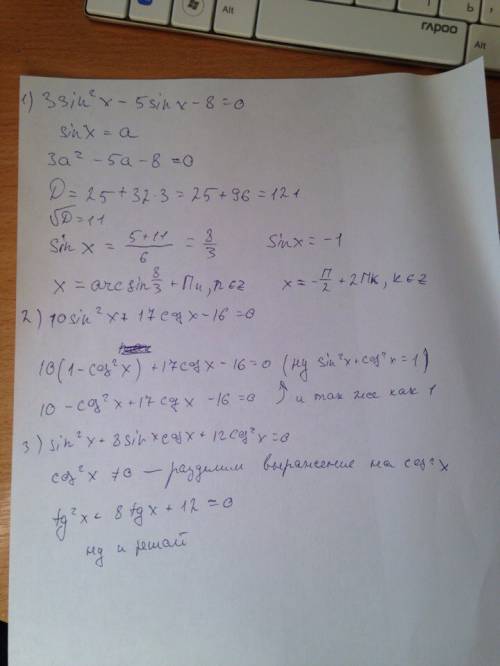 Alt
rapoo
Alt
1) 3sin²x - 5sinx - 8 = 0
sinx = a
3a² - 5a - 8 = 0
D = 25 + 32·3 = 25 + 96 = 121
√D = 11
sinx = (5+11)/6 = 8/3 sinx = -1
x = arcsin 8/3 + Πn, n∈z x = -Π/2 + 2Πk, k∈z
2) 10sin²x + 17cosx - 16 = 0
10(1-cos²x) + 17cosx - 16 = 0 (ну sin²x + cos²x = 1)
10 - cos²x + 17cosx - 16 = 0 и так же как 1
3) sin²x + 8sinxcosx + 12cos²x = 0
cos²x ≠ 0 — разделим выражение на cos²x
tg²x + 8tgx + 12 = 0
ну и решай